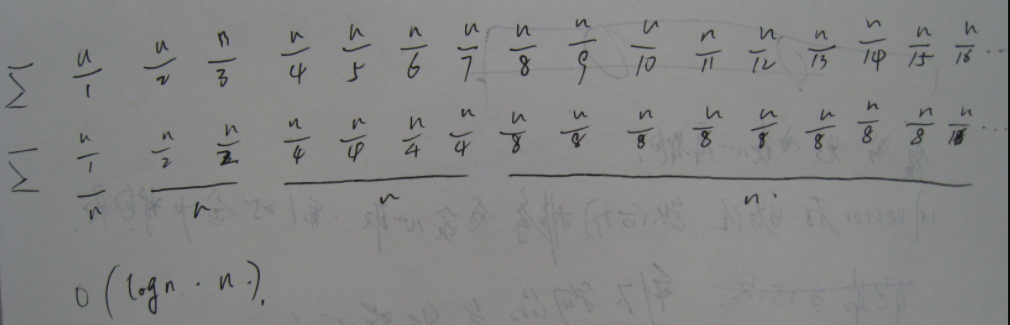 ∑ n/1 n/2 n/3 n/4 n/5 n/6 n/7 n/8 n/9 n/10 n/11 n/12 n/13 n/14 n/15 n/16 ...
∑ n/1 n/2 n/2 n/4 n/4 n/4 n/4 n/8 n/8 n/8 n/8 n/8 n/8 n/8 n/8 n/16 ...
n n n n.
O(logn · n).